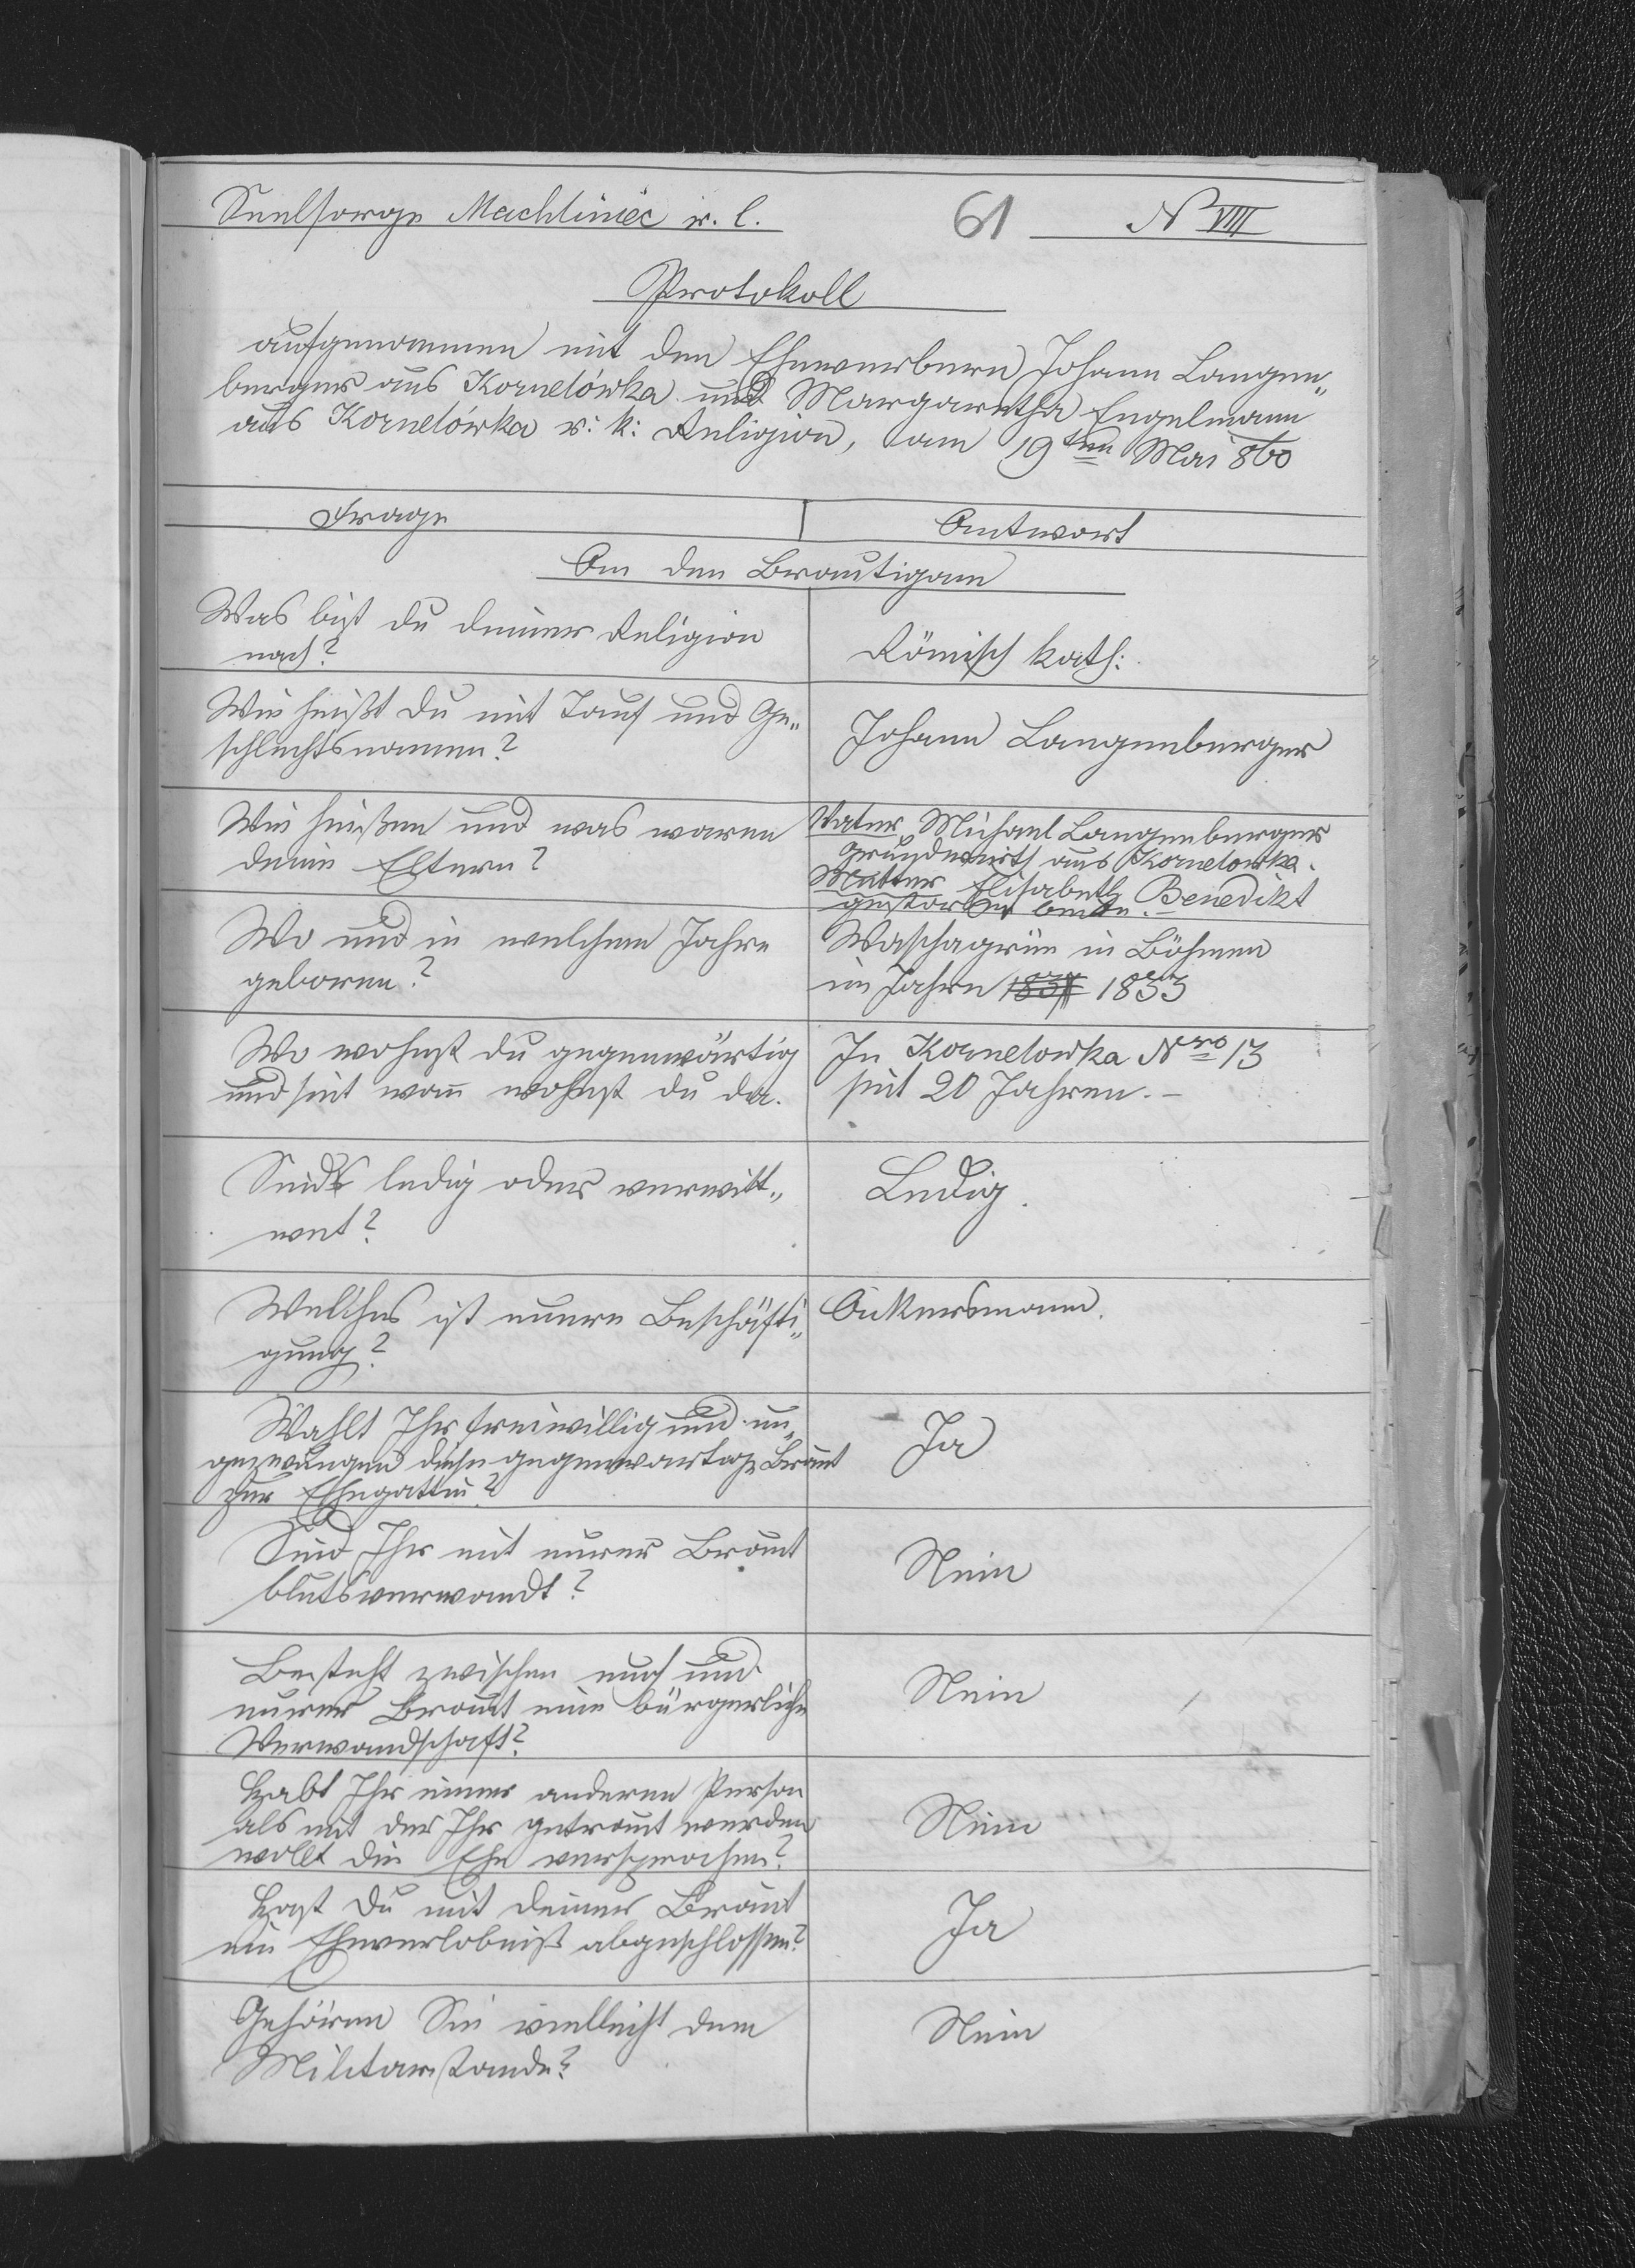 Seelsorge Machliniec r. l.
61
N VIII
Protokoll
aufgenommen mit den Ehewerbern Johann Langen„
berger aus Kornelówka und Margaretha Engelmann
aus Kornelówka r: k: Religion, am 19ten Mai 860
Frage
Antwort
An den Brautigam
Was bist du deiner Religion
nach?
Römisch kath:
Wie heißt du mit Tauf und Ge„
schlechtsnamen?
Johann Langenberger
Wie heißen und was waren
deine Eltern?
Vater Michael Langenberger
Grundwirth aus Kornelowka.
Mutter Elisabeth Benedikt
gestorben beide.
Wo und in welchem Jahre
geboren?
Waschagrün in Böhmen
im Jahre 1833
Wo wohnst du gegenwärtig
und seit wan wohnst du da.
In Kornelowka Nro 13
seit 20 Jahren.–
Seids ledig oder verwitt„
wet?
Ledig.
Welches ist euere Beschäfti„
gung?
Ackersmann.
Wahlt Ihr freiwillig und un„
gezwungen diese gegenwartige Braut
zur Ehegattin?
Ja
Seid Ihr mit eurer Braut
blutsverwandt?
Nein
Besteht zwischen euch und
eurer Braut eine bürgerliche
Verwandschaft?
Nein
Habt Ihr einer anderen Person
als mit der Ihr getraut werden
wollt die Ehe versprochen?
Nein
Hast du mit deiner Braut
ein Eheverlobniß abgeschlossen?
Ja
Gehören Sie vielleicht dem
Militarstande?
Nein